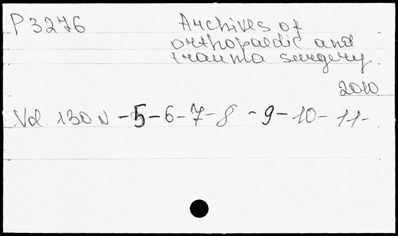 P 3276 Archives of
orthopaedic and
trauma surgery
2010
Vol 130 N -5-6-7-8 -9-10-11-